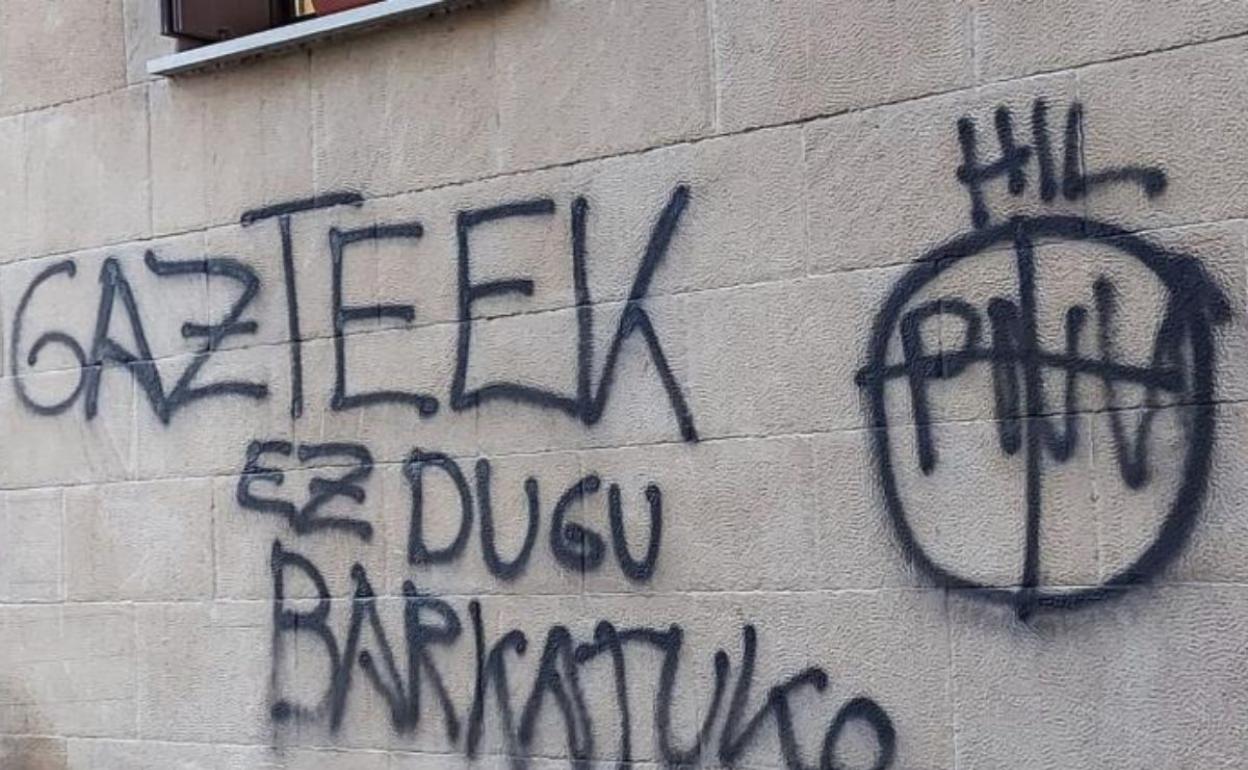 GAZTEEK
EZ DUGU
BARKATUKO
HIL
PNV